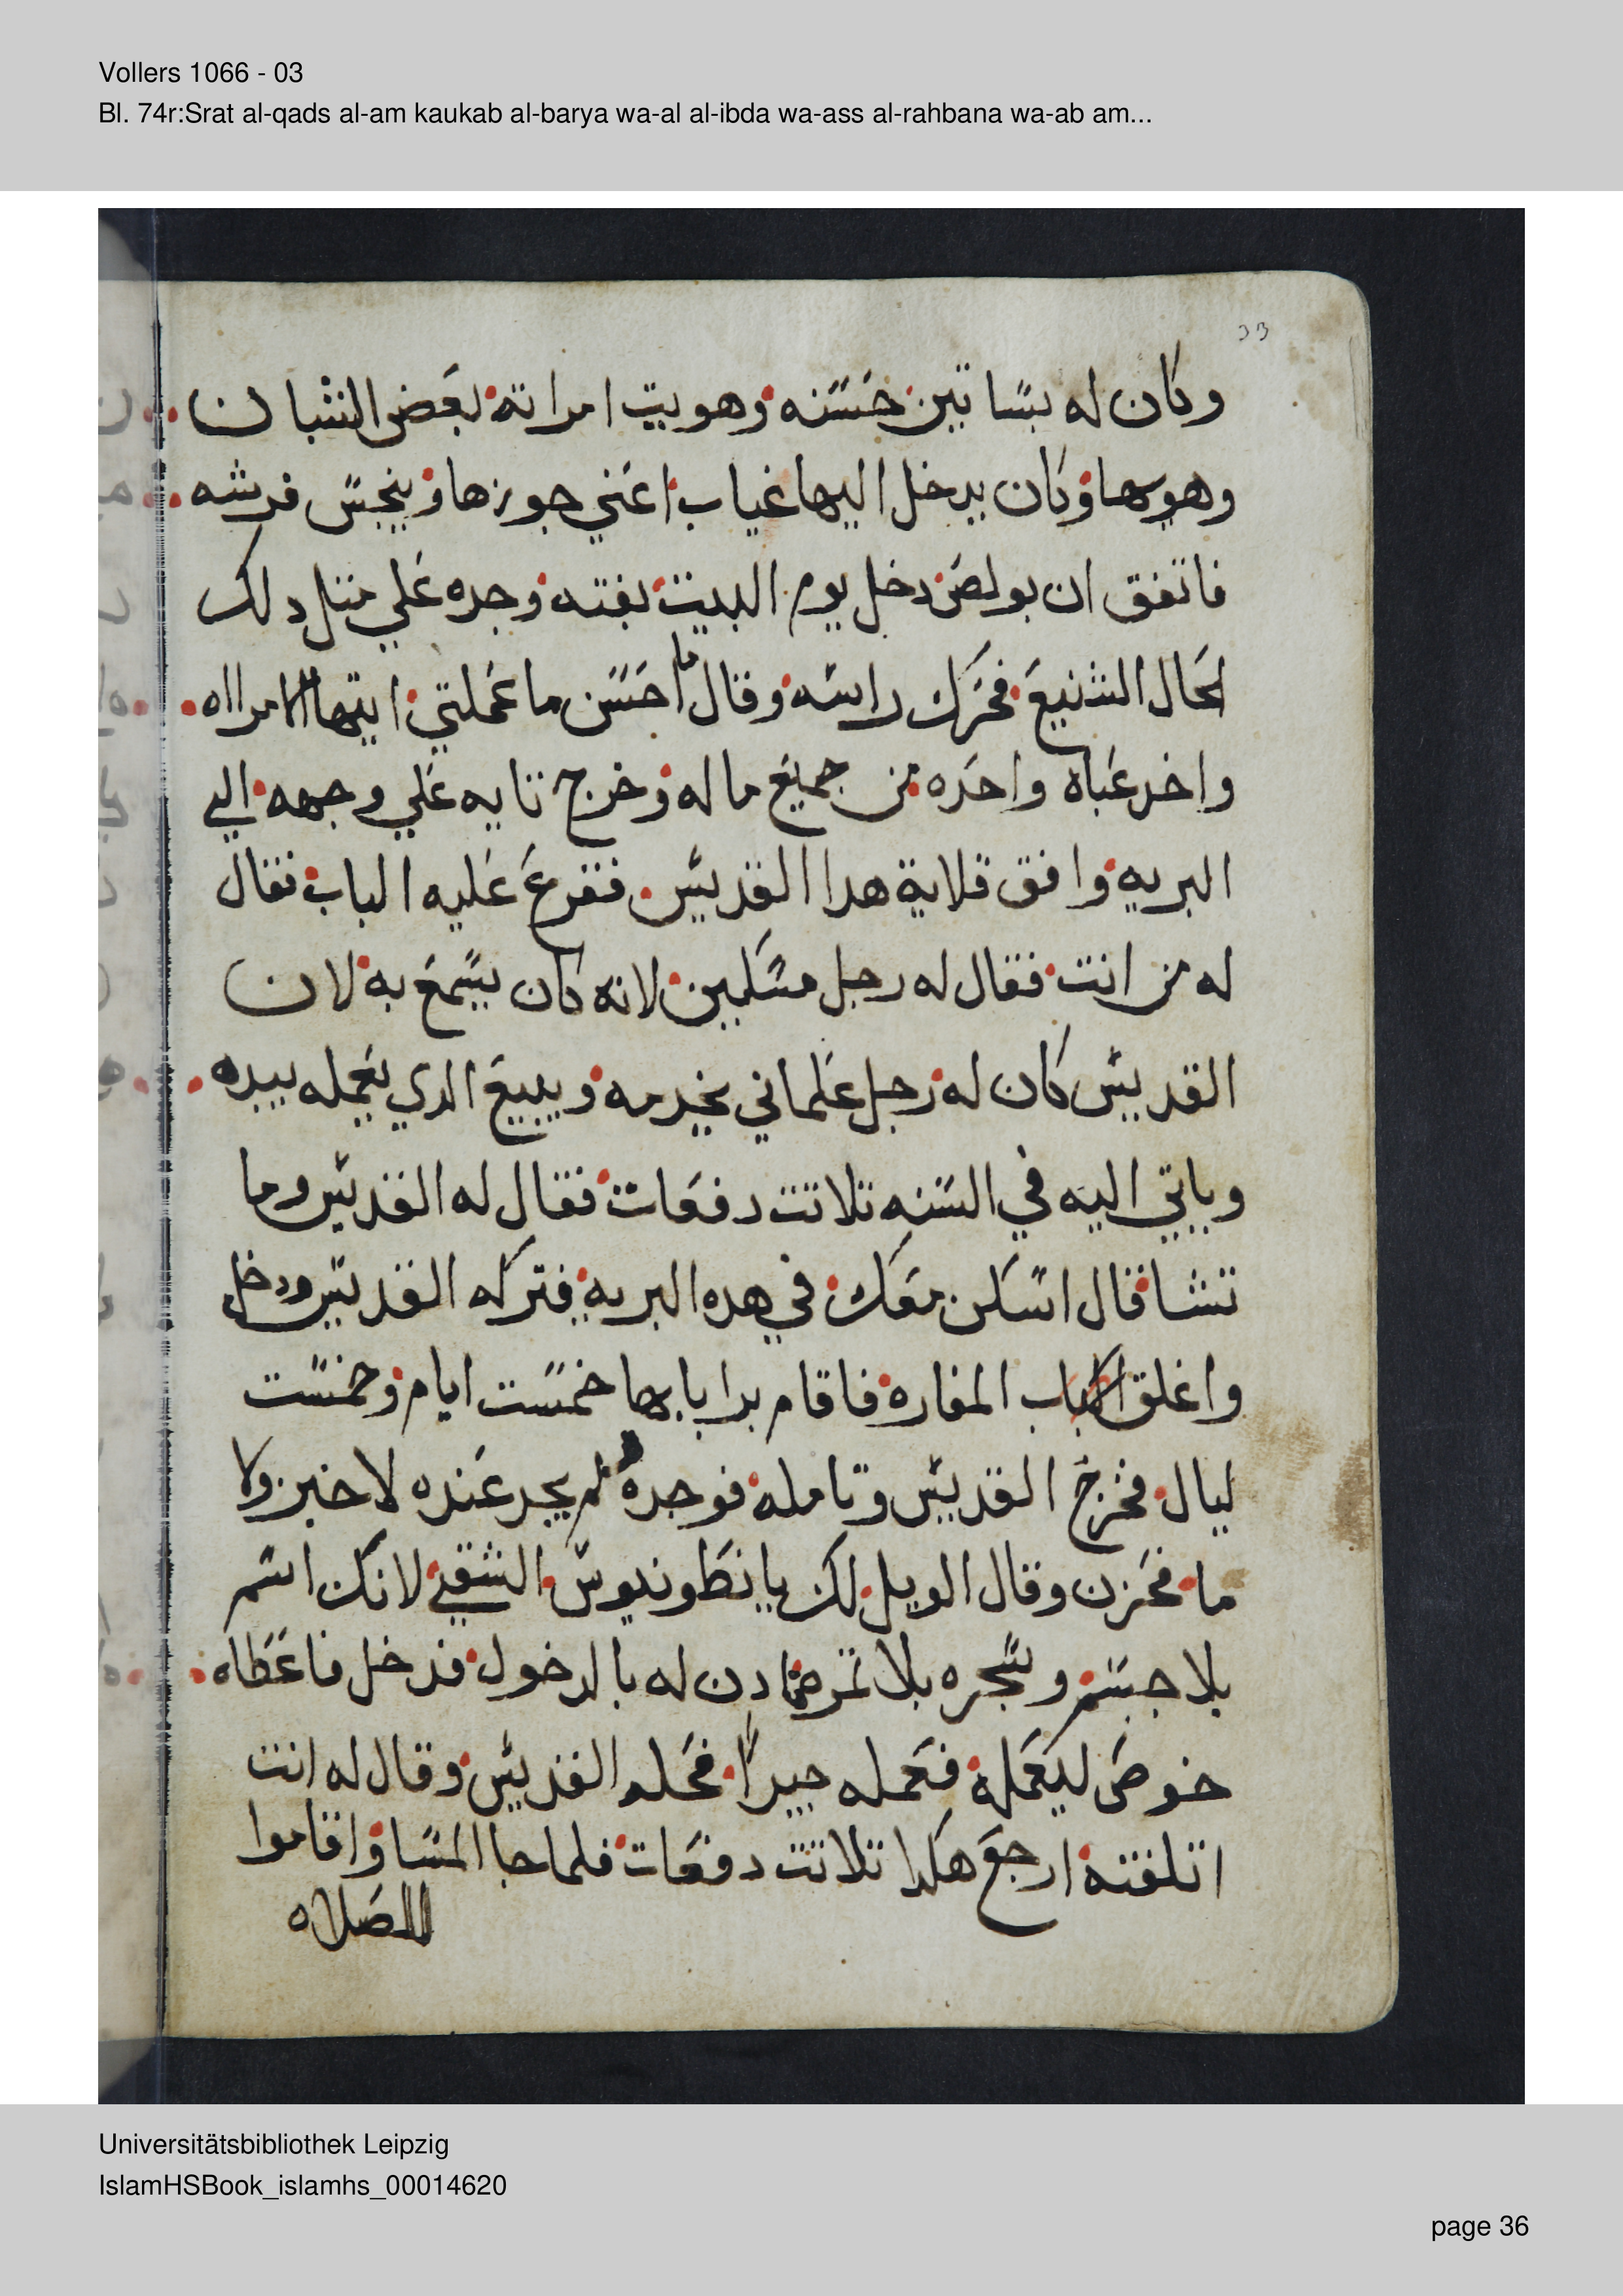 Vollers 1066 - 03
Bl. 74r:Srat al-qads al-am kaukab al-barya wa-al al-ibda wa-ass al-rahbana wa-ab am...
33
وكان له بساتين حسنه وهويت امراته بعض الشبان
وهويها وكان يدخل اليها غياب اعني جوزها وينجس فرشه
فاتفق ان بولص دخل يوم البيت بغته وجده علي متل دلك
الحال الشنيع فحرك راسه وقال ما احسن ما عملتي ايتها الامرااه
واخد عباه واحده من جميع ماله وخرج تايه علي وجهه الي
البريه وافق قلاية هدا القديس فقرع عليه الباب فقال
له من انت فقال له رجل مسكين لانه كان يسمع به لان
القديس كان له رجل علماني يخدمه ويبيع الدي يعمله بيده
وياتي اليه في السنه تلاتت دفعات فقال له القديس وما
تشا قال اسكن معك في هده البريه فتركه القديس ودخل
واغلق باب المغاره فاقام برا بابها خمست ايام وخمست
ليال فخرج القديس وتامله فوجده لم يجد عنده لا خبز ولا
ما فحزن وقال الويل لك يانطونيوس الشقي لانك اسم
بلا جسم وشجره بلا تمر دن له بالدخول فدخل فاعطاه
خوص ليعمله فعمله جيدا فحله القديس وقال له انت
اتلفته ارجع هكدا تلاتت دفعات فلما جا المسا واقاموا
للصلاه
Universitätsbibliothek Leipzig
IslamHSBook_islamhs_00014620
page 36